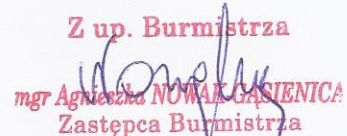 Z up. Burmistrza
mgr Agnieszka NOWAK-GĄSIENICA
Zastępca Burmistrza